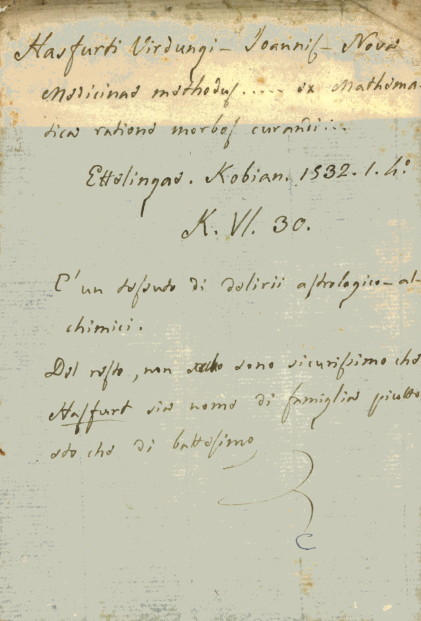 Hasfurti Virdungi – Joannis – Nova
Medicinae methodus ..... ex Mathema-
tica ratione morbos curandi ...
Ettelingae. Kobian. 1532. 1. 4.º
K. VI. 30.
E' un tessuto di delirii astrologico-al-
chimici.
Del resto, non sono sicurissimo che
Hasfurt sia nome di famiglia piutto
sto che di battesimo